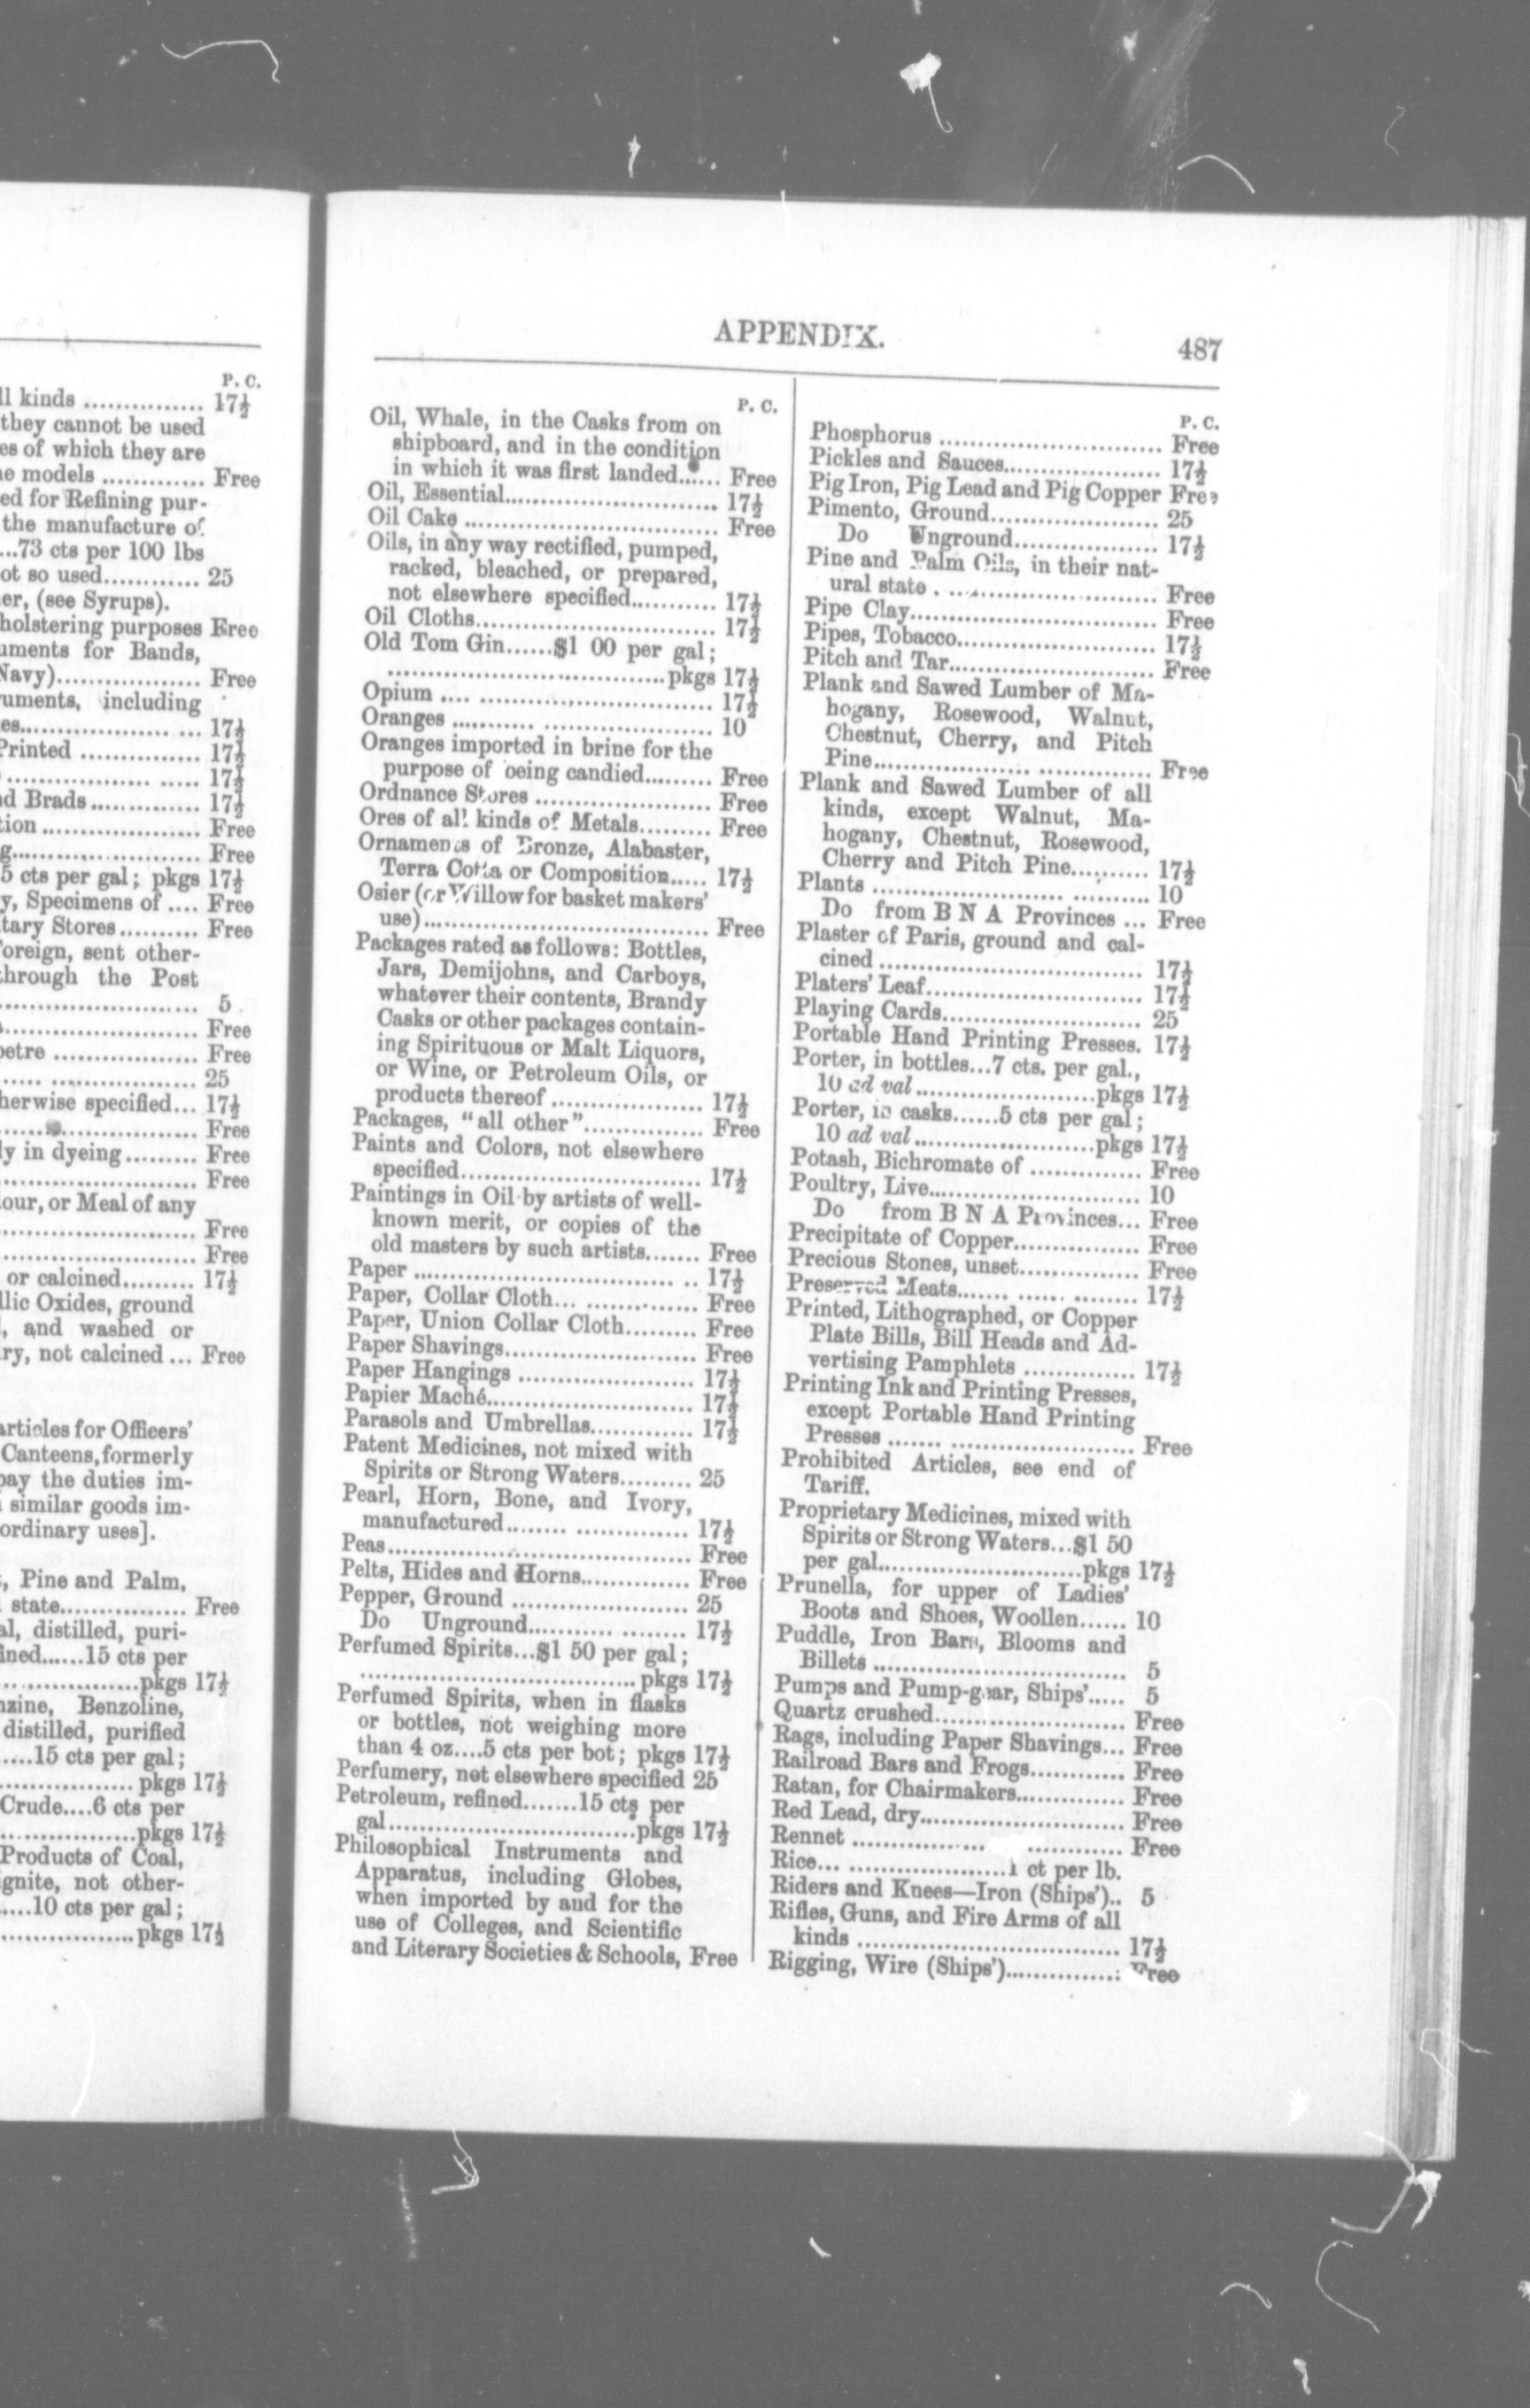 P. C.
ll kinds ............... 17½
they cannot be used
es of which they are
e models ............. Free
ed for Refining pur-
the manufacture of
...73 cts per 100 lbs
ot so used............ 25
er, (see Syrups).
holstering purposes Free
uments for Bands,
Navy).................. Free
ruments, including
es...................... ... 17½
Printed ............... 17½
.................. ..... 17½
d Brads............. 17½
tion .................... Free
g........................... Free
5 cts per gal; pkgs 17½
y, Specimens of .... Free
tary Stores.......... Free
Foreign, sent other-
through the Post
......................... 5
......................... Free
petre .................. Free
..... .................. 25
herwise specified... 17½
......................... Free
ly in dyeing......... Free
......................... Free
our, or Meal of any
......................... Free
......................... Free
or calcined......... 17½
llic Oxides, ground
, and washed or
ry, not calcined ... Free
articles for Officers'
Canteens, formerly
pay the duties im-
similar goods im-
ordinary uses].
, Pine and Palm,
state................ Free
al, distilled, puri-
ined......15 cts per
.................pkgs 17½
nzine, Benzoline,
distilled, purified
.....15 cts per gal;
................. pkgs 17½
Crude....6 cts per
.................pkgs 17½
Products of Coal,
ignite, not other-
.....10 cts per gal;
.................pkgs 17½
APPENDIX.
487
P. C.
Oil, Whale, in the Casks from on
shipboard, and in the condition
in which it was first landed...... Free
Oil, Essential........................... 17½
Oil Cake ................................ Free
Oils, in any way rectified, pumped,
racked, bleached, or prepared,
not elsewhere specified........... 17½
Oil Cloths.............................. 17½
Old Tom Gin......$1 00 per gal;
...................................pkgs 17½
Opium .... .............................. 17½
Oranges ........... ..................... 10
Oranges imported in brine for the
purpose of being candied......... Free
Ordnance Stores ...................... Free
Ores of all kinds of Metals......... Free
Ornaments of Bronze, Alabaster,
Terra Cotta or Composition..... 17½
Osier (or Willow for basket makers'
use).................................... Free
Packages rated as follows: Bottles,
Jars, Demijohns, and Carboys,
whatever their contents, Brandy
Casks or other packages contain-
ing Spirituous or Malt Liquors,
or Wine, or Petroleum Oils, or
products thereof ................... 17½
Packages, "all other"............... Free
Paints and Colors, not elsewhere
specified.............................. 17½
Paintings in Oil by artists of well-
known merit, or copies of the
old masters by such artists....... Free
Paper ................................. .. 17½
Paper, Collar Cloth... .............. Free
Paper, Union Collar Cloth......... Free
Paper Shavings........................ Free
Paper Hangings ...................... 17½
Papier Maché.......................... 17½
Parasols and Umbrellas............. 17½
Patent Medicines, not mixed with
Spirits or Strong Waters......... 25
Pearl, Horn, Bone, and Ivory,
manufactured........ .............. 17½
Peas...................................... Free
Pelts, Hides and Horns.............. Free
Pepper, Ground ...................... 25
Do Unground........... ........ 17½
Perfumed Spirits...$1 50 per gal;
...................................pkgs 17½
Perfumed Spirits, when in flasks
or bottles, not weighing more
than 4 oz....5 cts per bot; pkgs 17½
Perfumery, not elsewhere specified 25
Petroleum, refined.......15 cts per
gal...............................pkgs 17½
Philosophical Instruments and
Apparatus, including Globes,
when imported by and for the
use of Colleges, and Scientific
and Literary Societies & Schools, Free
P. C.
Phosphorus ............................ Free
Pickles and Sauces.................... 17½
Pig Iron, Pig Lead and Pig Copper Free
Pimento, Ground..................... 25
Do Unground.................. 17½
Pine and Palm Oils, in their nat-
ural state . .......................... Free
Pipe Clay............................... Free
Pipes, Tobacco......................... 17½
Pitch and Tar.......................... Free
Plank and Sawed Lumber of Ma-
hogany, Rosewood, Walnut,
Chestnut, Cherry, and Pitch
Pine.................... .............. Free
Plank and Sawed Lumber of all
kinds, except Walnut, Ma-
hogany, Chestnut, Rosewood,
Cherry and Pitch Pine.......... 17½
Plants ........................ .......... 10
Do from B N A Provinces ... Free
Plaster of Paris, ground and cal-
cined ................................. 17½
Platers' Leaf........................... 17½
Playing Cards......................... 25
Portable Hand Printing Presses. 17½
Porter, in bottles...7 cts. per gal.,
10 ad val..........................pkgs 17½
Porter, in casks......5 cts per gal;
10 ad val..........................pkgs 17½
Potash, Bichromate of .............. Free
Poultry, Live........................... 10
Do from B N A Provinces... Free
Precipitate of Copper................ Free
Precious Stones, unset............... Free
Preserved Meats....... ...... ........ 17½
Printed, Lithographed, or Copper
Plate Bills, Bill Heads and Ad-
vertising Pamphlets .............. 17½
Printing Ink and Printing Presses,
except Portable Hand Printing
Presses ....... ....................... Free
Prohibited Articles, see end of
Tariff.
Proprietary Medicines, mixed with
Spirits or Strong Waters...$1 50
per gal..........................pkgs 17½
Prunella, for upper of Ladies'
Boots and Shoes, Woollen...... 10
Puddle, Iron Bars, Blooms and
Billets ................................ 5
Pumps and Pump-gear, Ships'..... 5
Quartz crushed........................ Free
Rags, including Paper Shavings... Free
Railroad Bars and Frogs............ Free
Ratan, for Chairmakers.............. Free
Red Lead, dry.......................... Free
Rennet ................. ............ Free
Rice... ....................1 ct per lb.
Riders and Knees—Iron (Ships').. 5
Rifles, Guns, and Fire Arms of all
kinds ................................. 17½
Rigging, Wire (Ships')............... Free